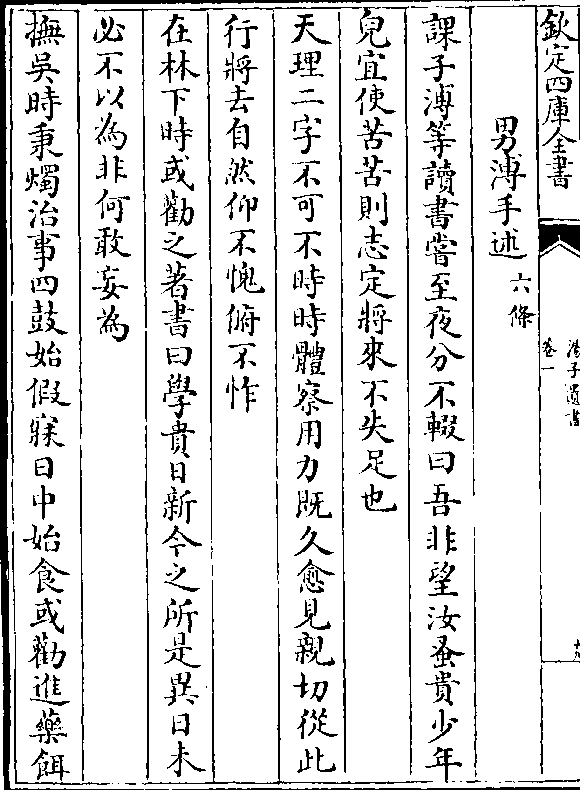 欽定四庫全書
湯子遺書
卷一
男溥手述六條
課子溥等讀書嘗至夜分不輟曰吾非望汝蚤貴少年
兒宜使苦苦則志定將來不失足也
天理二字不可不時時體察用力既久愈見親切從此
行將去自然仰不愧俯不怍
在林下時或勸之著書曰學貴日新今之所是異日未
必不以為非何敢妄為
撫吳時秉燭治事四鼓始假寐日中始食或勸進藥餌